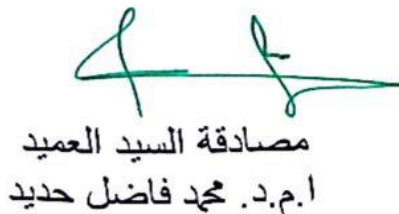 مصادقة السيد العميد
ا.م.د. محمد فاضل حديد